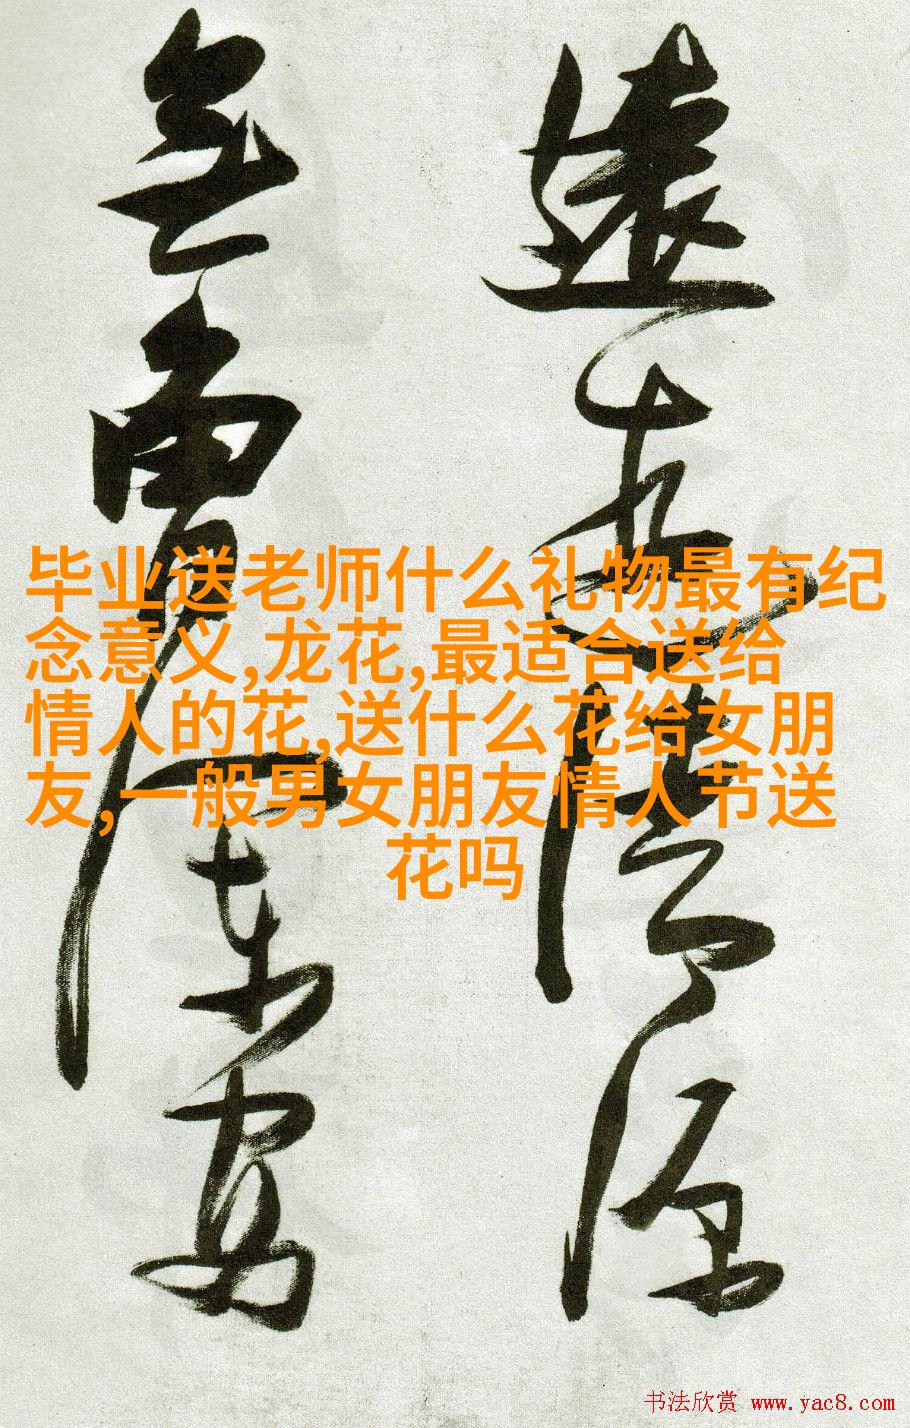 遠
安
毕业送老师什么礼物最有纪
念意义,龙花,最适合送给
情人的花,送什么花给女朋
友,一般男女朋友情人节送
花吗
书法欣赏 www.yac8.com